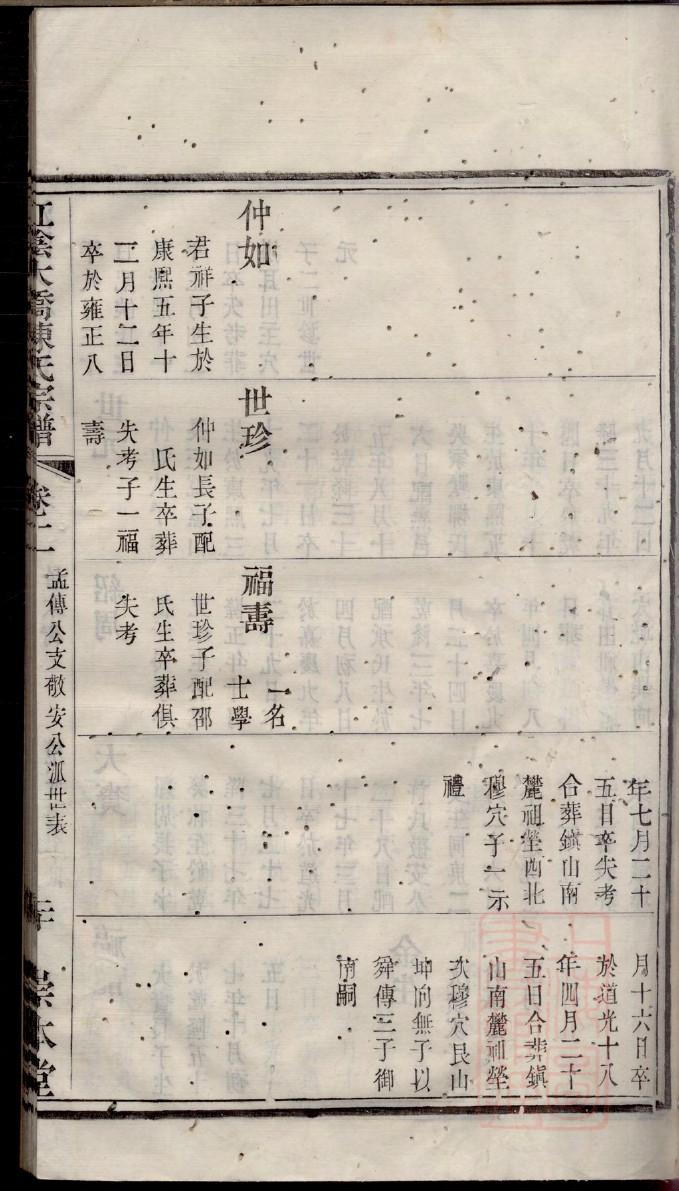 仲如
君祥子生於
康熙五年十
二月十二日
卒於雍正八
世珍
仲如長子配
氏生卒葬
失考子一福
壽
福壽
一名
士學
世珍子配邵
氏生卒葬俱
失考
年七月二十
五日卒失考
合葬鎮山南
麓祖塋西北
穆穴子一示
禮
月十六日卒
於道光十八
年四月二十
五日合葬鎮
山南麓祖塋
次穆穴艮山
坤向無子以
舜傳三子御
南嗣
江陰大橋陳氏宗譜
卷十二
孟傳公支敬安公派世表
崇本堂